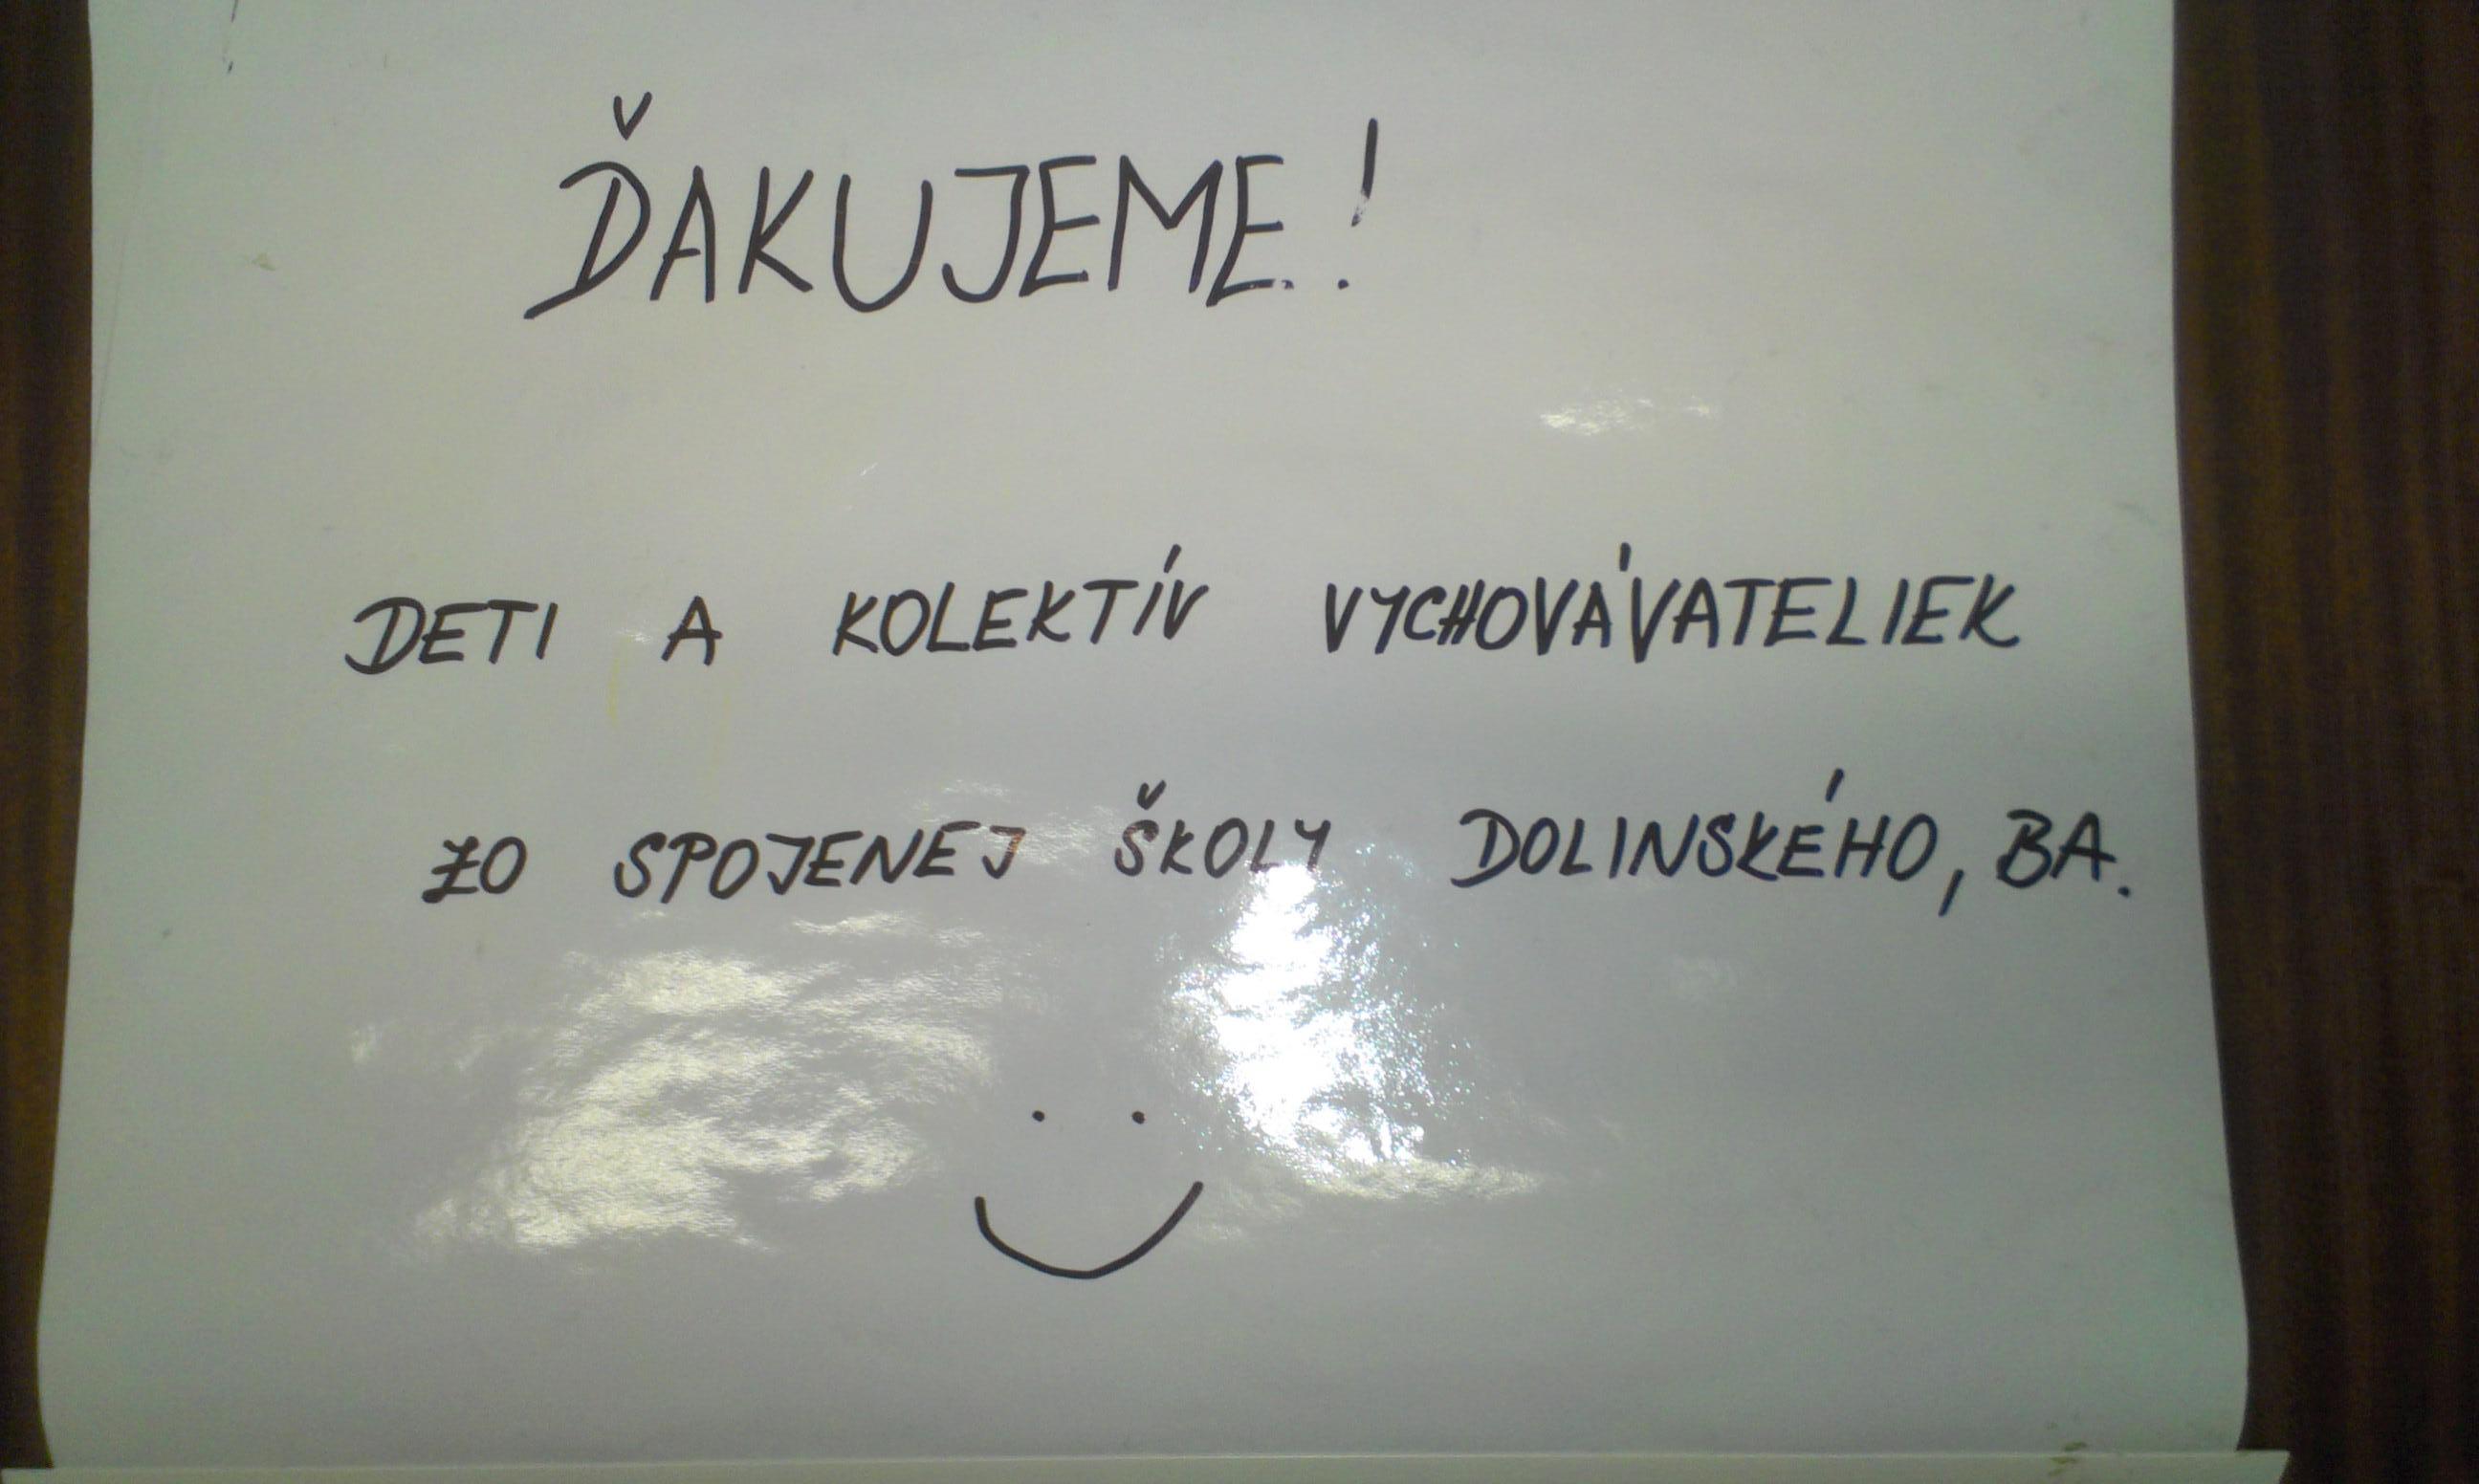 ĎAKUJEME!
DETI A KOLEKTÍV VYCHOVÁVATELIEK
ZO SPOJENEJ ŠKOLY DOLINSKÉHO, BA.